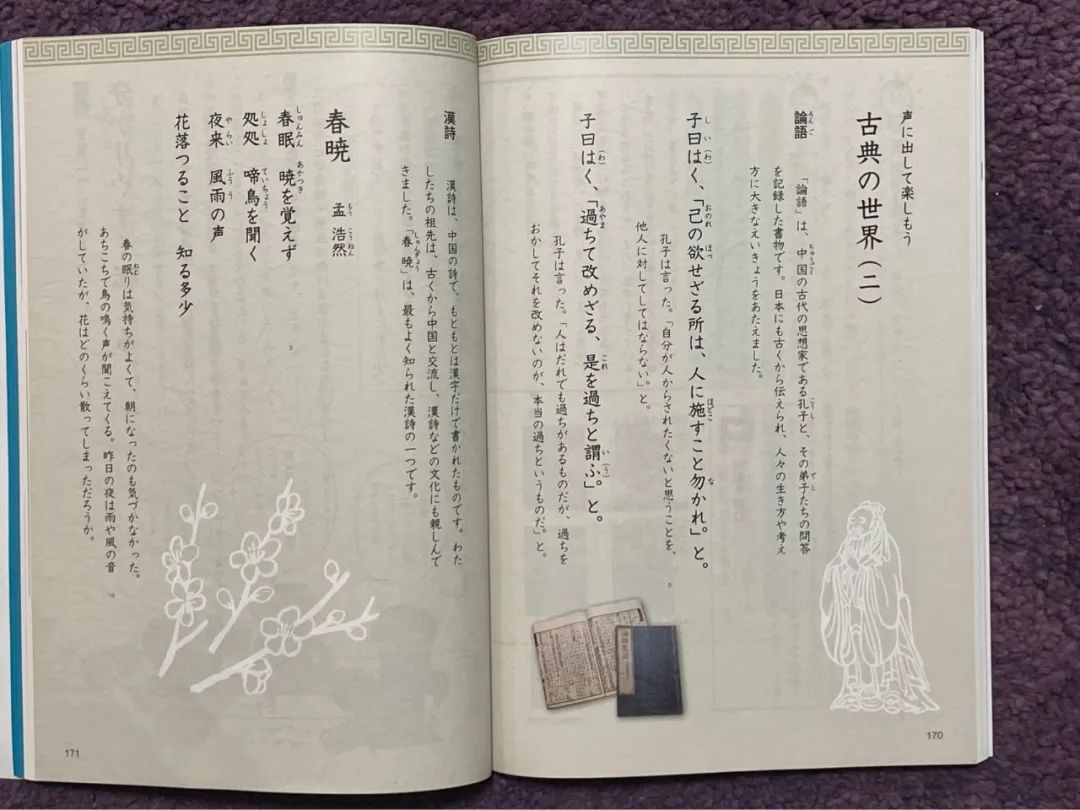 声に出して楽しもう
古典の世界（二）
論語
「論語」は、中国の古代の思想家である孔子と、その弟子たちの問答
を記録した書物です。日本にも古くから伝えられ、人々の生き方や考え
方に大きなえいきょうをあたえました。
子曰はく、「己の欲せざる所は、人に施すこと勿かれ。」と。
孔子は言った。「自分が人からされたくないと思うことを、
他人に対してしてはならない。」と。
子曰はく、「過ちて改めざる、是を過ちと謂ふ。」と。
孔子は言った。「人はだれでも過ちがあるものだが、過ちを
おかしてそれを改めないのが、本当の過ちというものだ。」と。
5
170
漢詩
漢詩は、中国の詩で、もともとは漢字だけで書かれたものです。わた
したちの祖先は、古くから中国と交流し、漢詩などの文化にも親しんで
きました。「春暁」は、最もよく知られた漢詩の一つです。
春暁
孟浩然
春眠 暁を覚えず
処処 啼鳥を聞く
夜来 風雨の声
花落つること 知る多少
春の眠りは気持ちがよくて、朝になったのも気づかなかった。
あちこちで鳥の鳴く声が聞こえてくる。昨日の夜は雨や風の音
がしていたが、花はどのくらい散ってしまっただろうか。
5
10
171